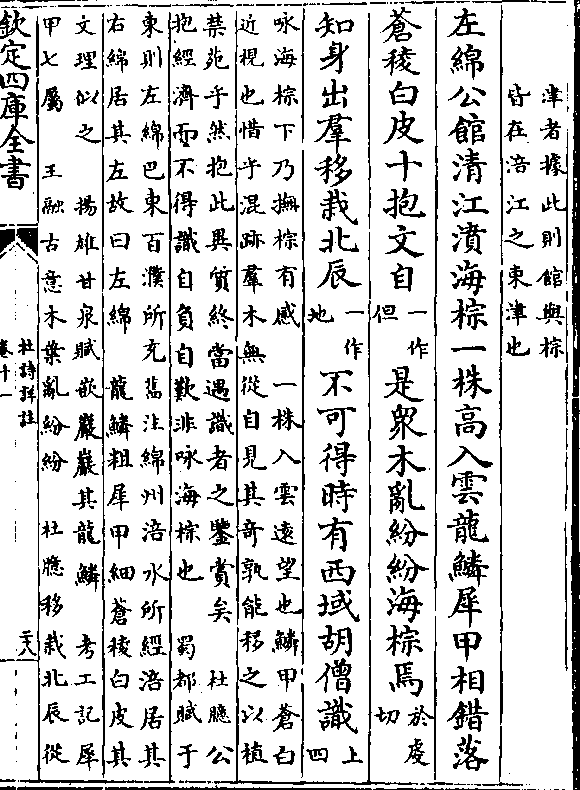 津者據此則館與棕
皆在涪江之東津也
左綿公館清江濆海棕一株高入雲龍鱗犀甲相錯落
蒼稜白皮十抱文自一作但是衆木亂紛紛海棕焉於虔切
知身出羣移栽北辰一作地不可得時有西域胡僧識上四
咏海棕下乃撫棕有感 一株入雲遠望也鱗甲蒼白
近視也惜乎混跡羣木無從自見其奇孰能移之以植
禁苑乎然抱此異質終當遇識者之鑒賞矣 杜臆公
抱經濟而不得識自負自歎非咏海棕也 蜀都賦于
東則左綿巴東百濮所充 舊注綿州涪水所經涪居其
右綿居其左故曰左綿 龍鱗粗犀甲細蒼稜白皮其
文理似之 揚雄甘泉賦嵌巖巖其龍鱗 考工記犀
甲七屬 王融古意木葉亂紛紛 杜臆移栽北辰從
欽定四庫全書
杜詩詳註
卷十一
二十八